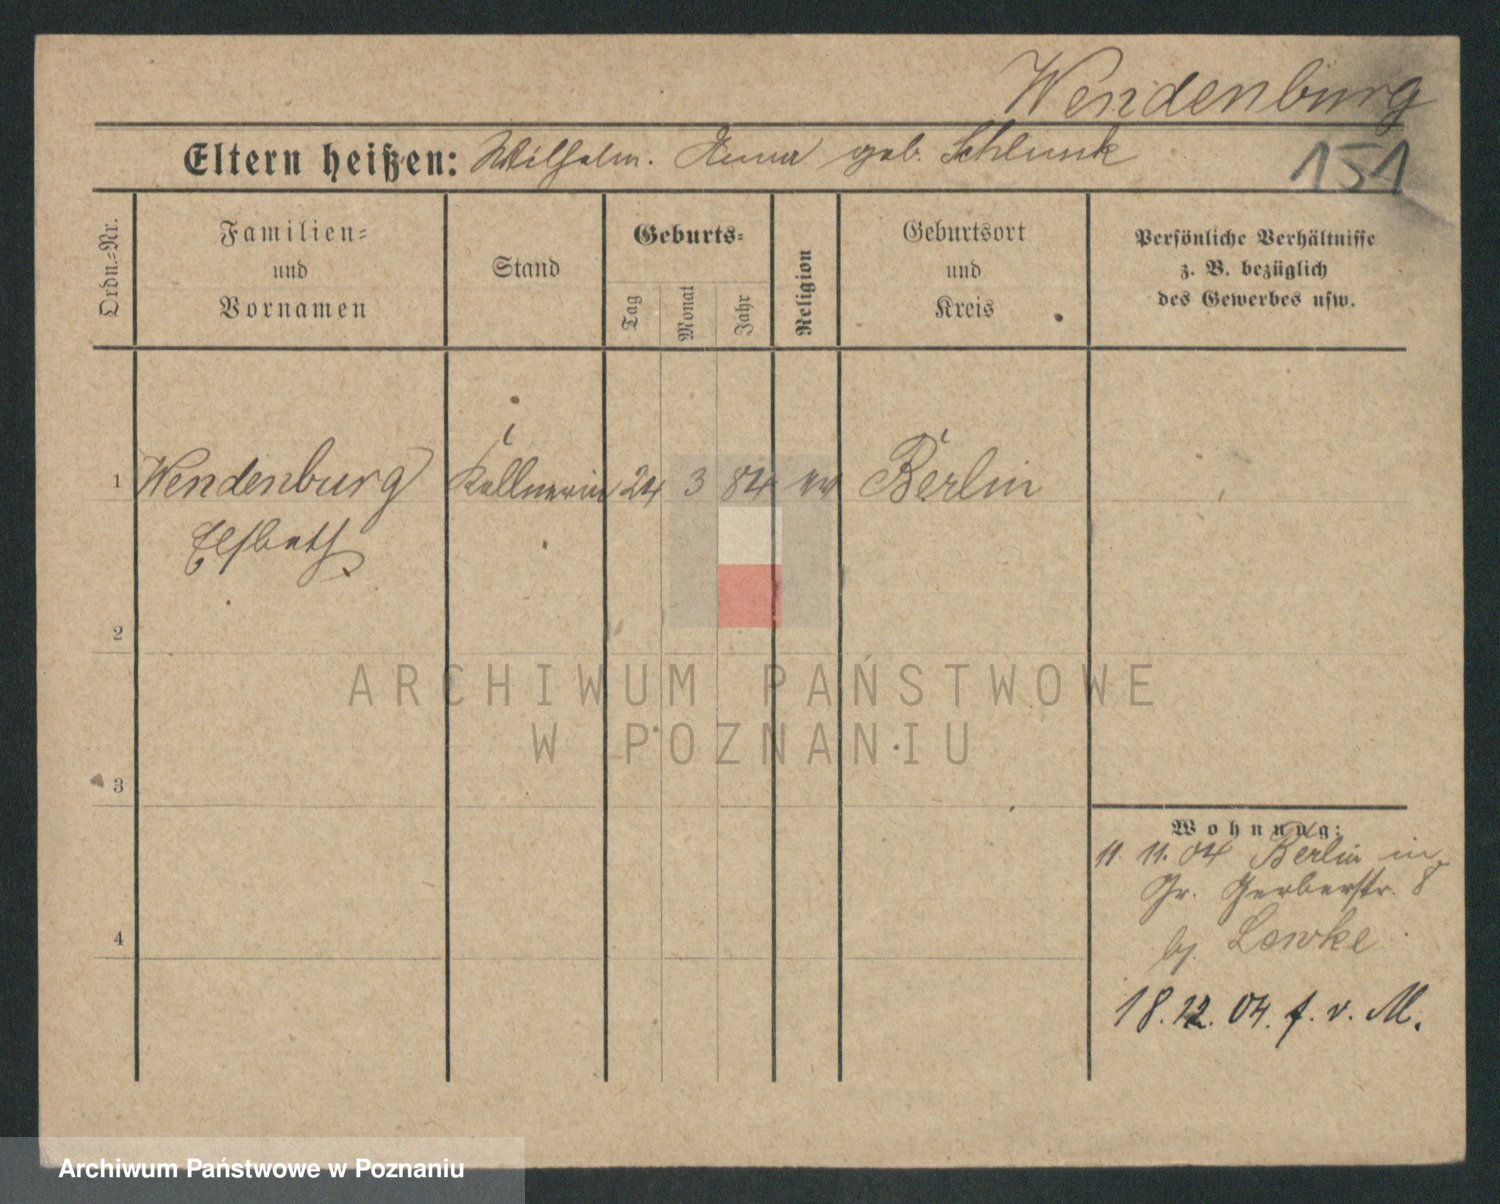 Wendenburg
Eltern heißen: Wilhelm. Anna geb. Schlunk
151
Ordn.-Nr.
Familien-
und
Vornamen
Stand
Geburts-
Tag
Monat
Jahr
Religion
Geburtsort
und
Kreis
Persönliche Verhältnisse
z. B. bezüglich
des Gewerbes usw.
1 Wendenburg Kellnerin 24 3 84 ev Berlin
Elsbeth
2
3
4
Wohnung:
11. 11. 04 Berlin in
Gr. Gerberstr. 8
bj. Lewke
18. 12. 04. f. v. M.
ARCHIWUM PAŃSTWOWE
W POZNANIU
Archiwum Państwowe w Poznaniu